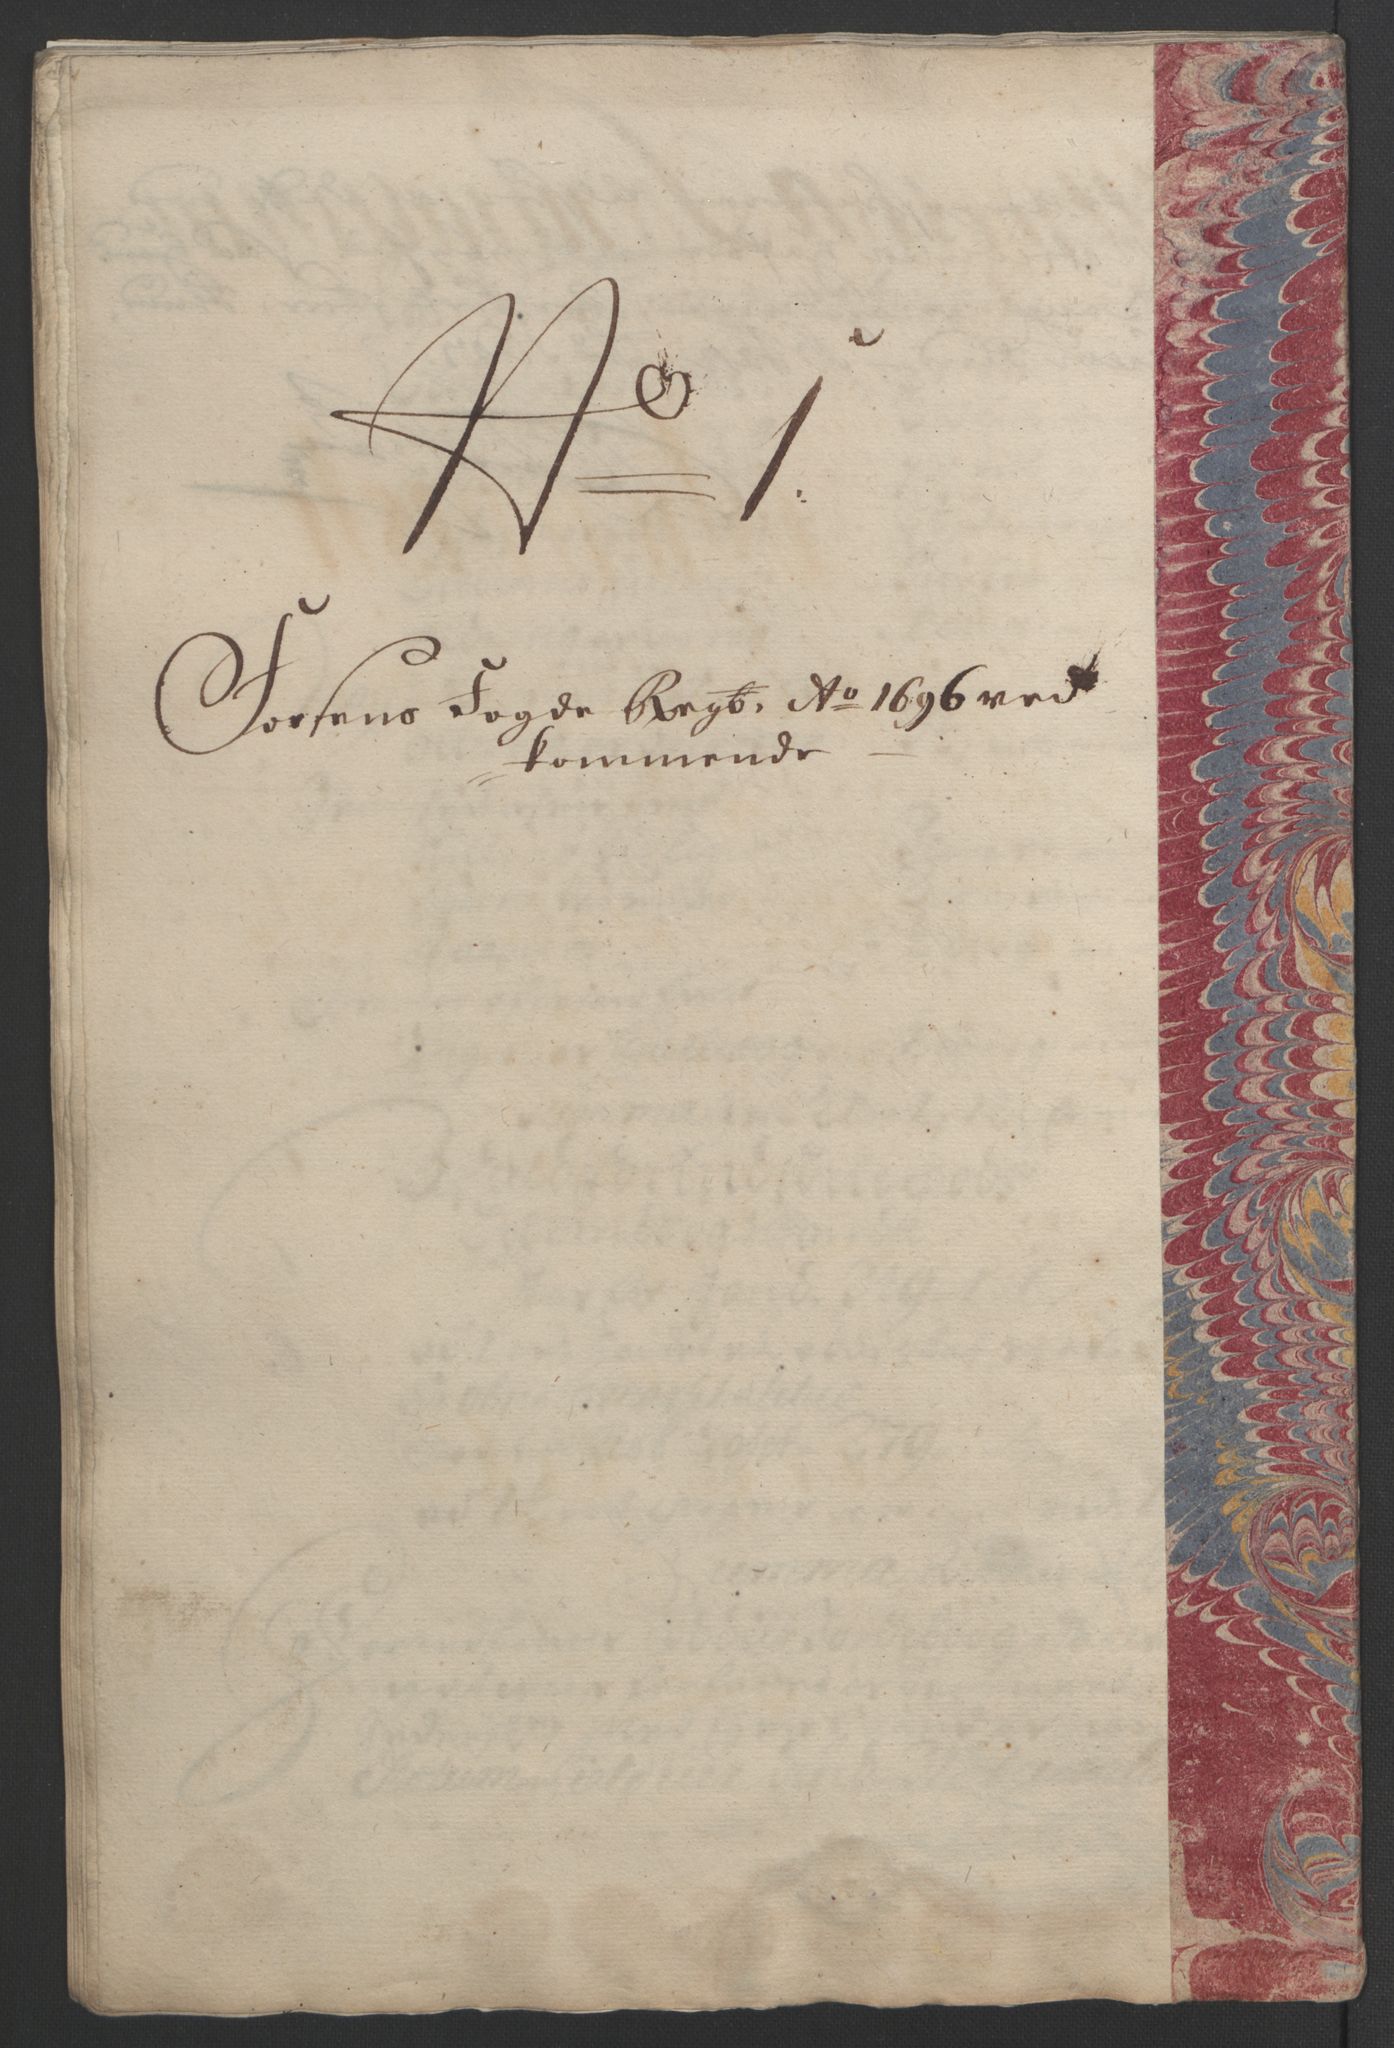 No 1.
Fosens Fogde Regb. Ao 1696 ved
kommende